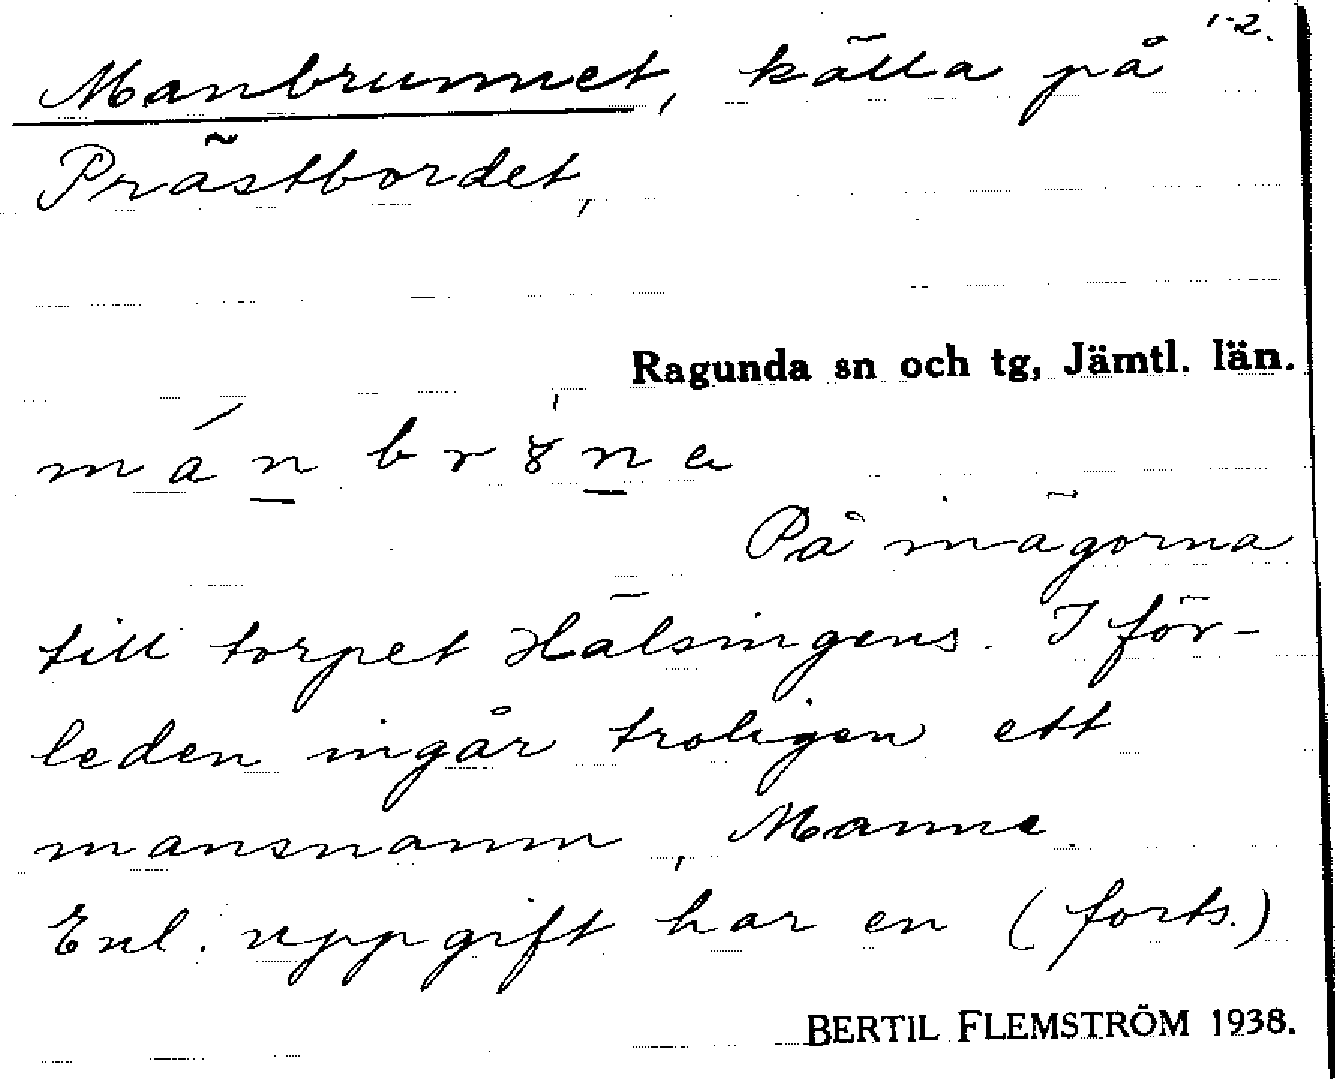 1-2.
Manbrunnet, källa på
Prästbordet,
Ragunda sn och tg, Jämtl. län.
På inägorna
till torpet Hälsingens. I för-
leden ingår troligen ett
mansnamn, Manne.
Enl. uppgift har en (forts.)
BERTIL FLEMSTRÖM 1938.